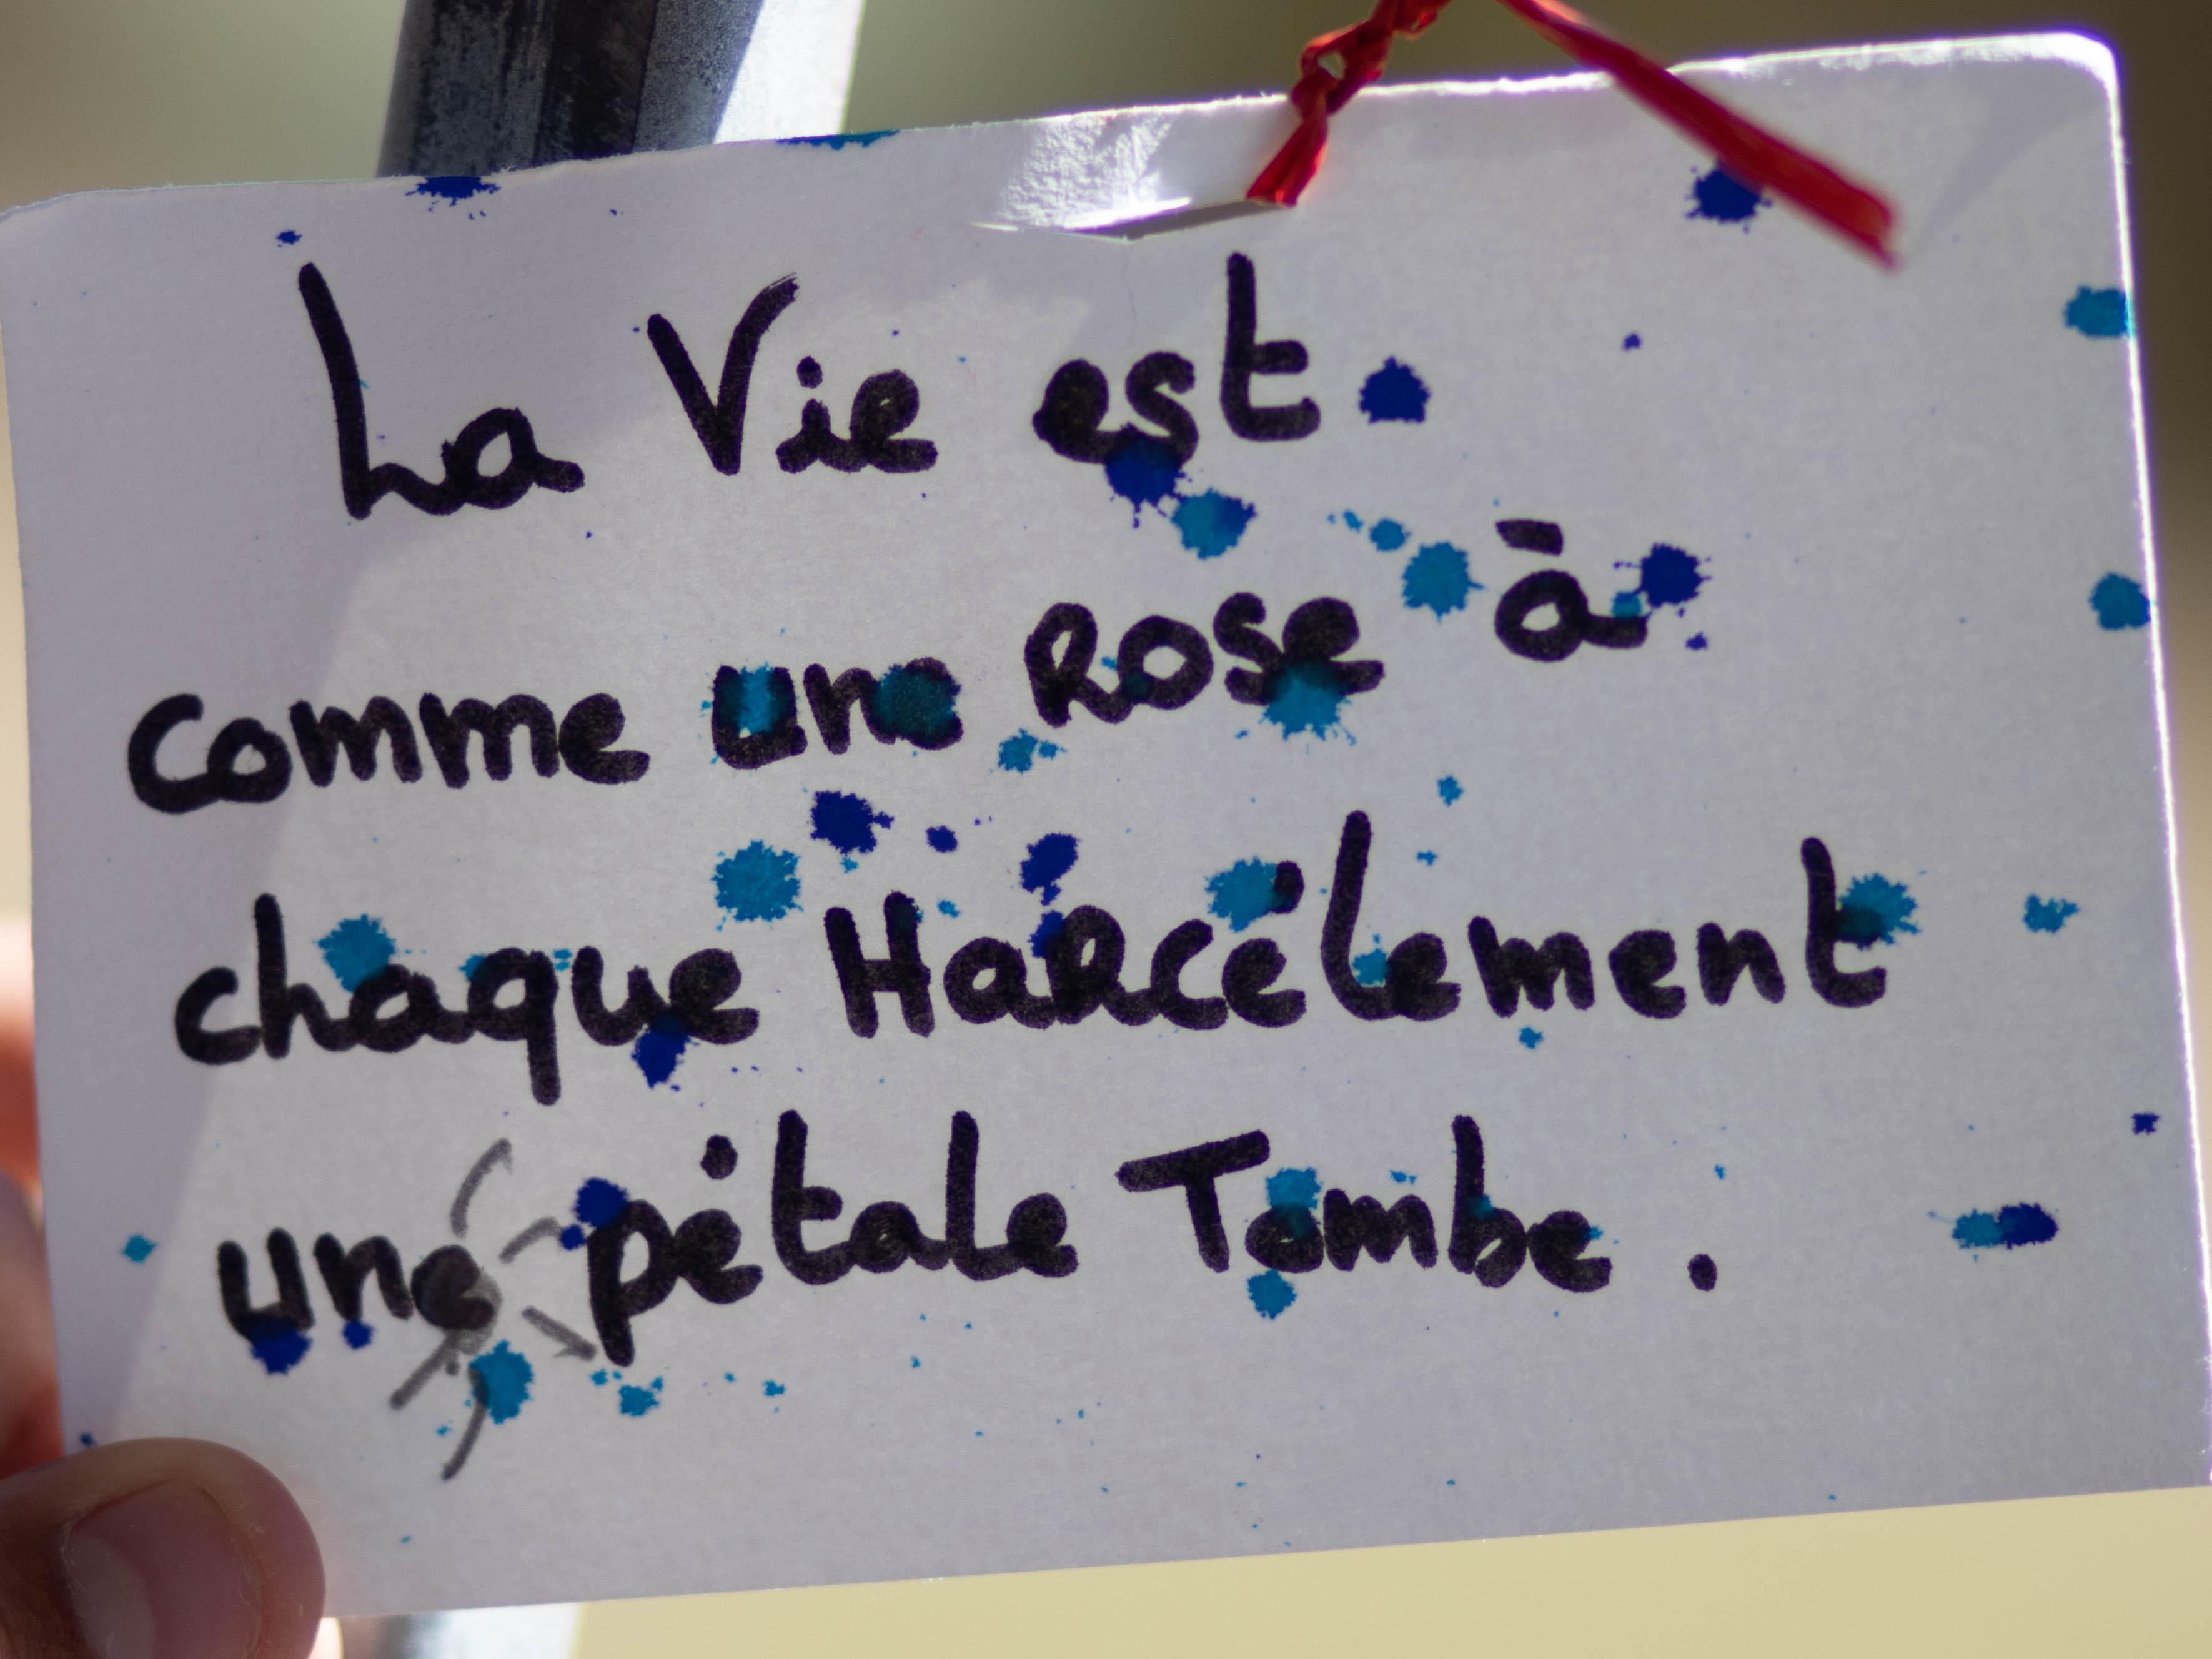 La Vie est
comme une Rose à
chaque Harcélement
une pétale Tombe.